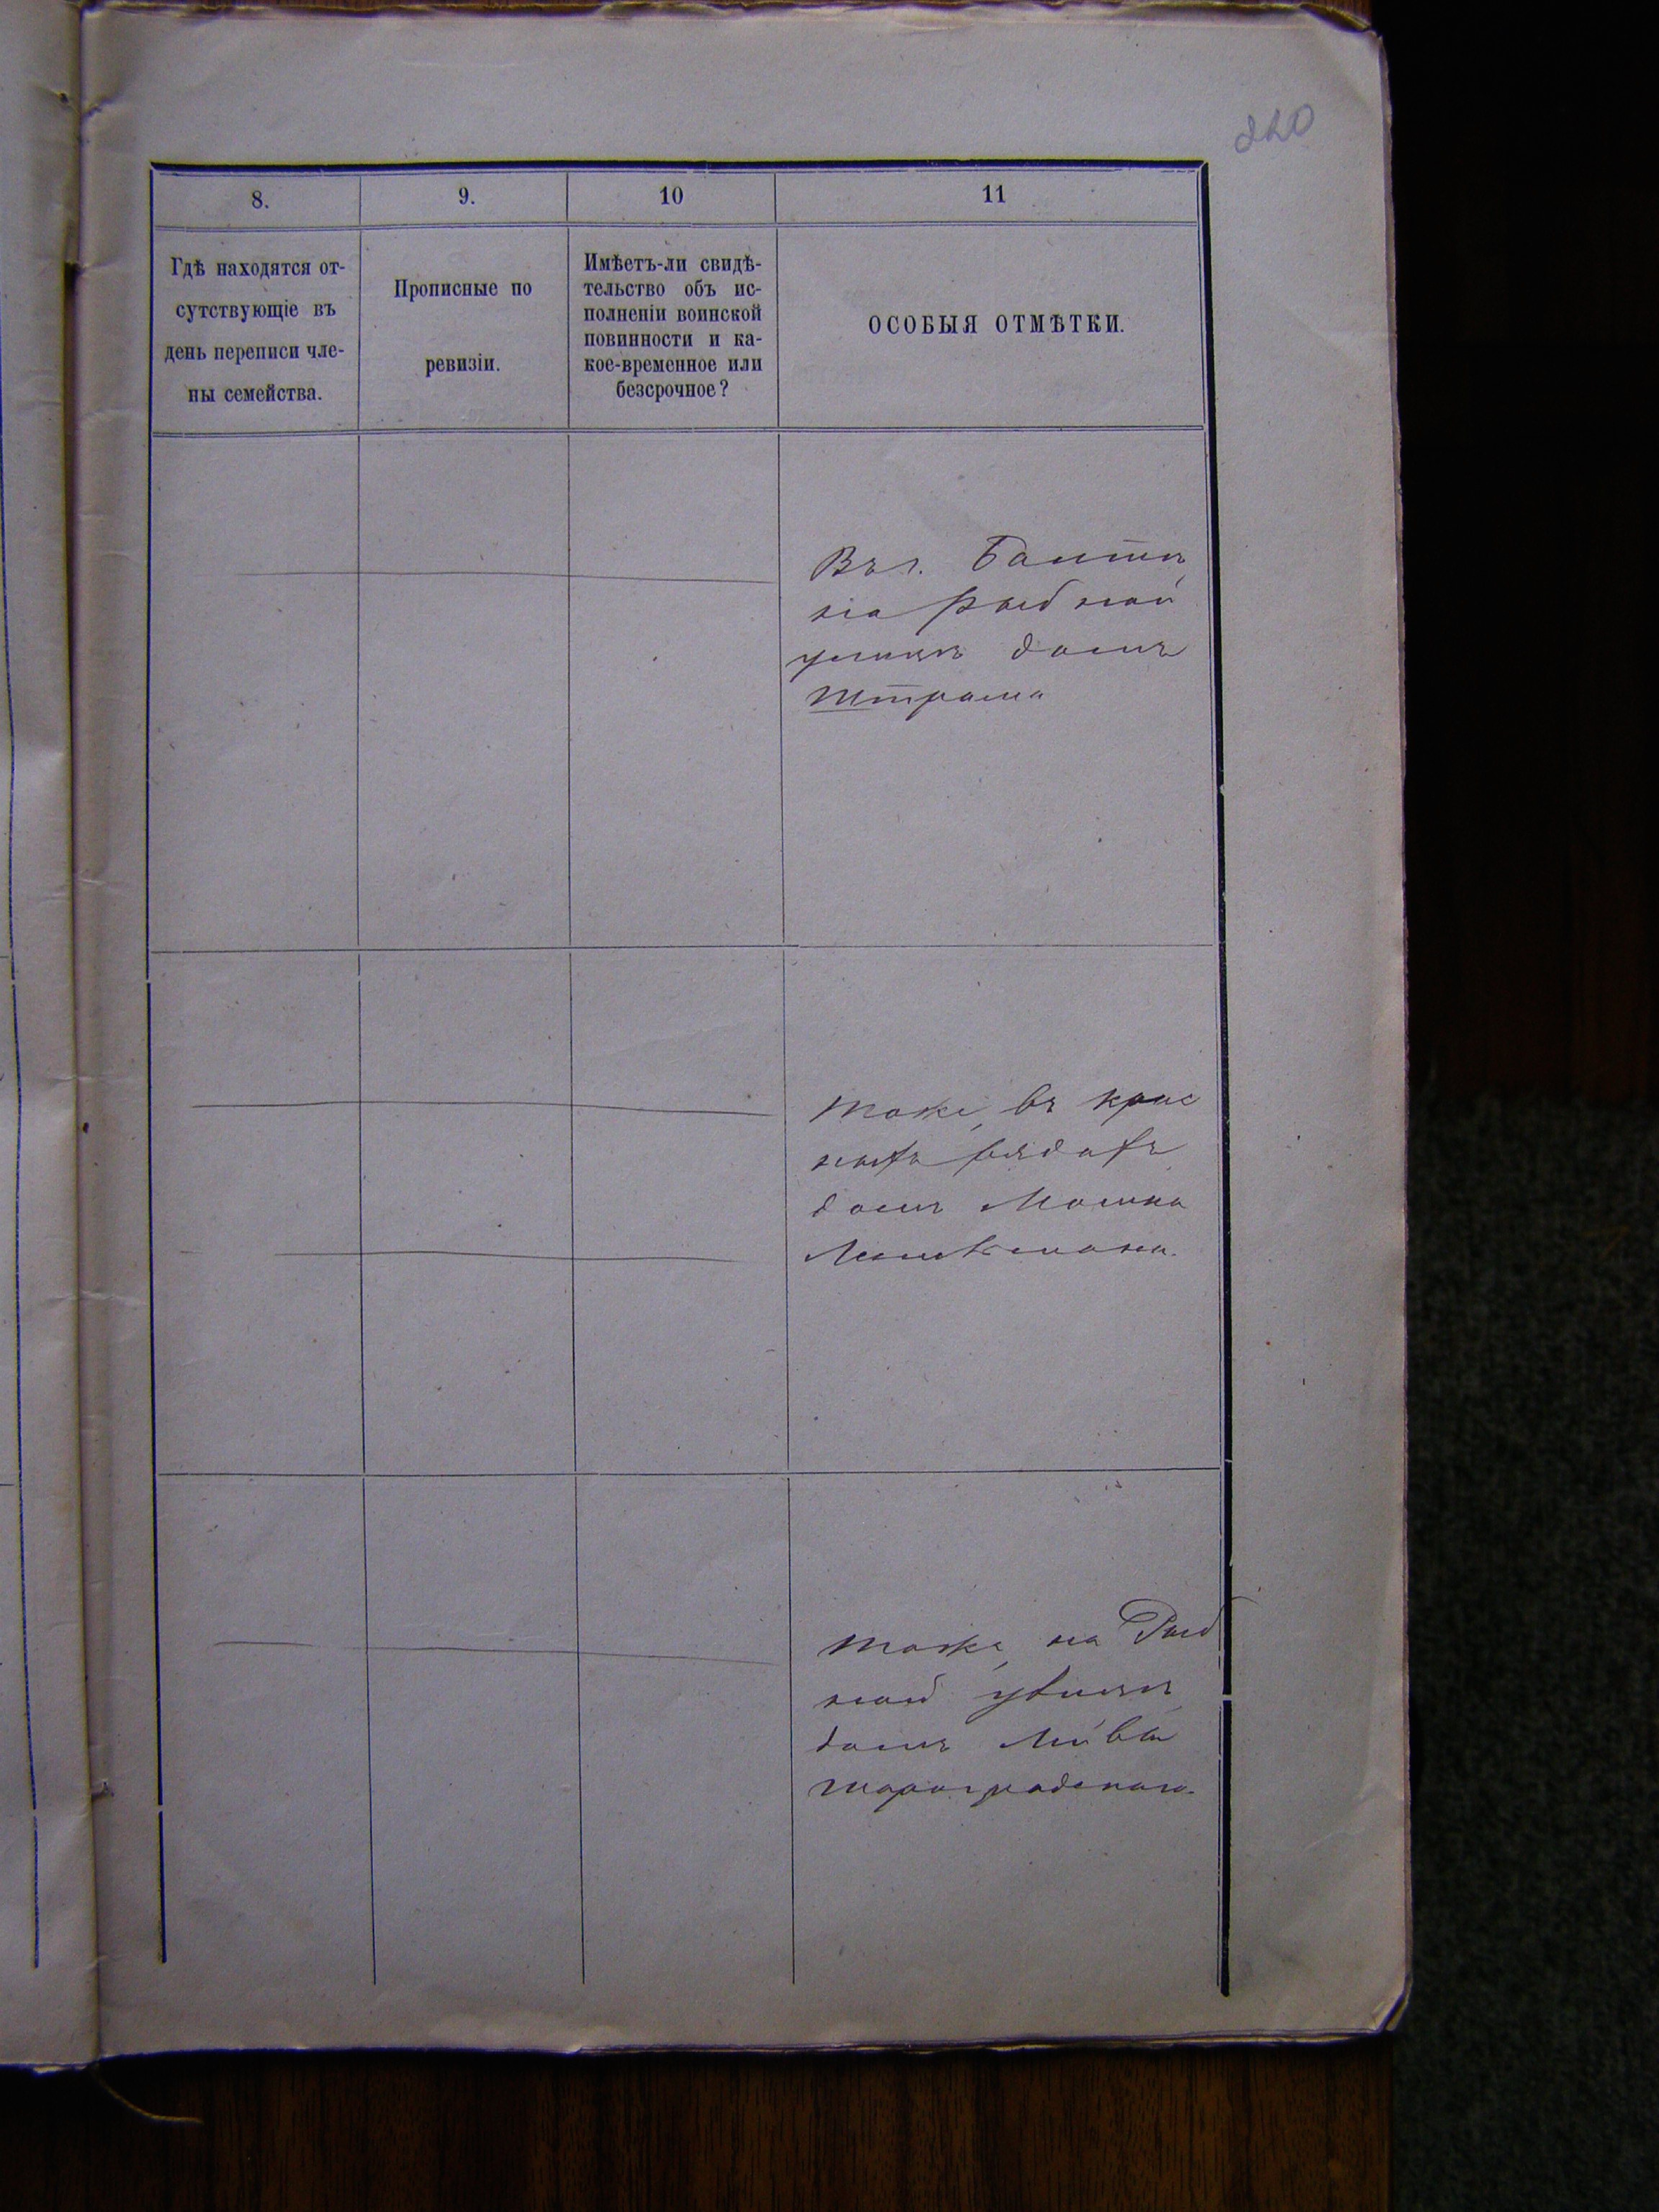 220
8.
9.
10
11
Гдѣ находятся от-
сутствующіе въ
день переписи чле-
ны семейства.
Прописные по
ревизіи.
Имѣетъ-ли свидѣ-
тельство объ ис-
полненіи воинской
повинности и ка-
кое-временное или
безсрочное?
ОСОБЫЯ ОТМѢТКИ.
Въ г. Балтѣ
на Рыбной
улицѣ домъ
Штрама
тоже, въ крас
ныхъ рядахъ
домъ Мошка
тоже, на Рыб
ной улицѣ
домъ